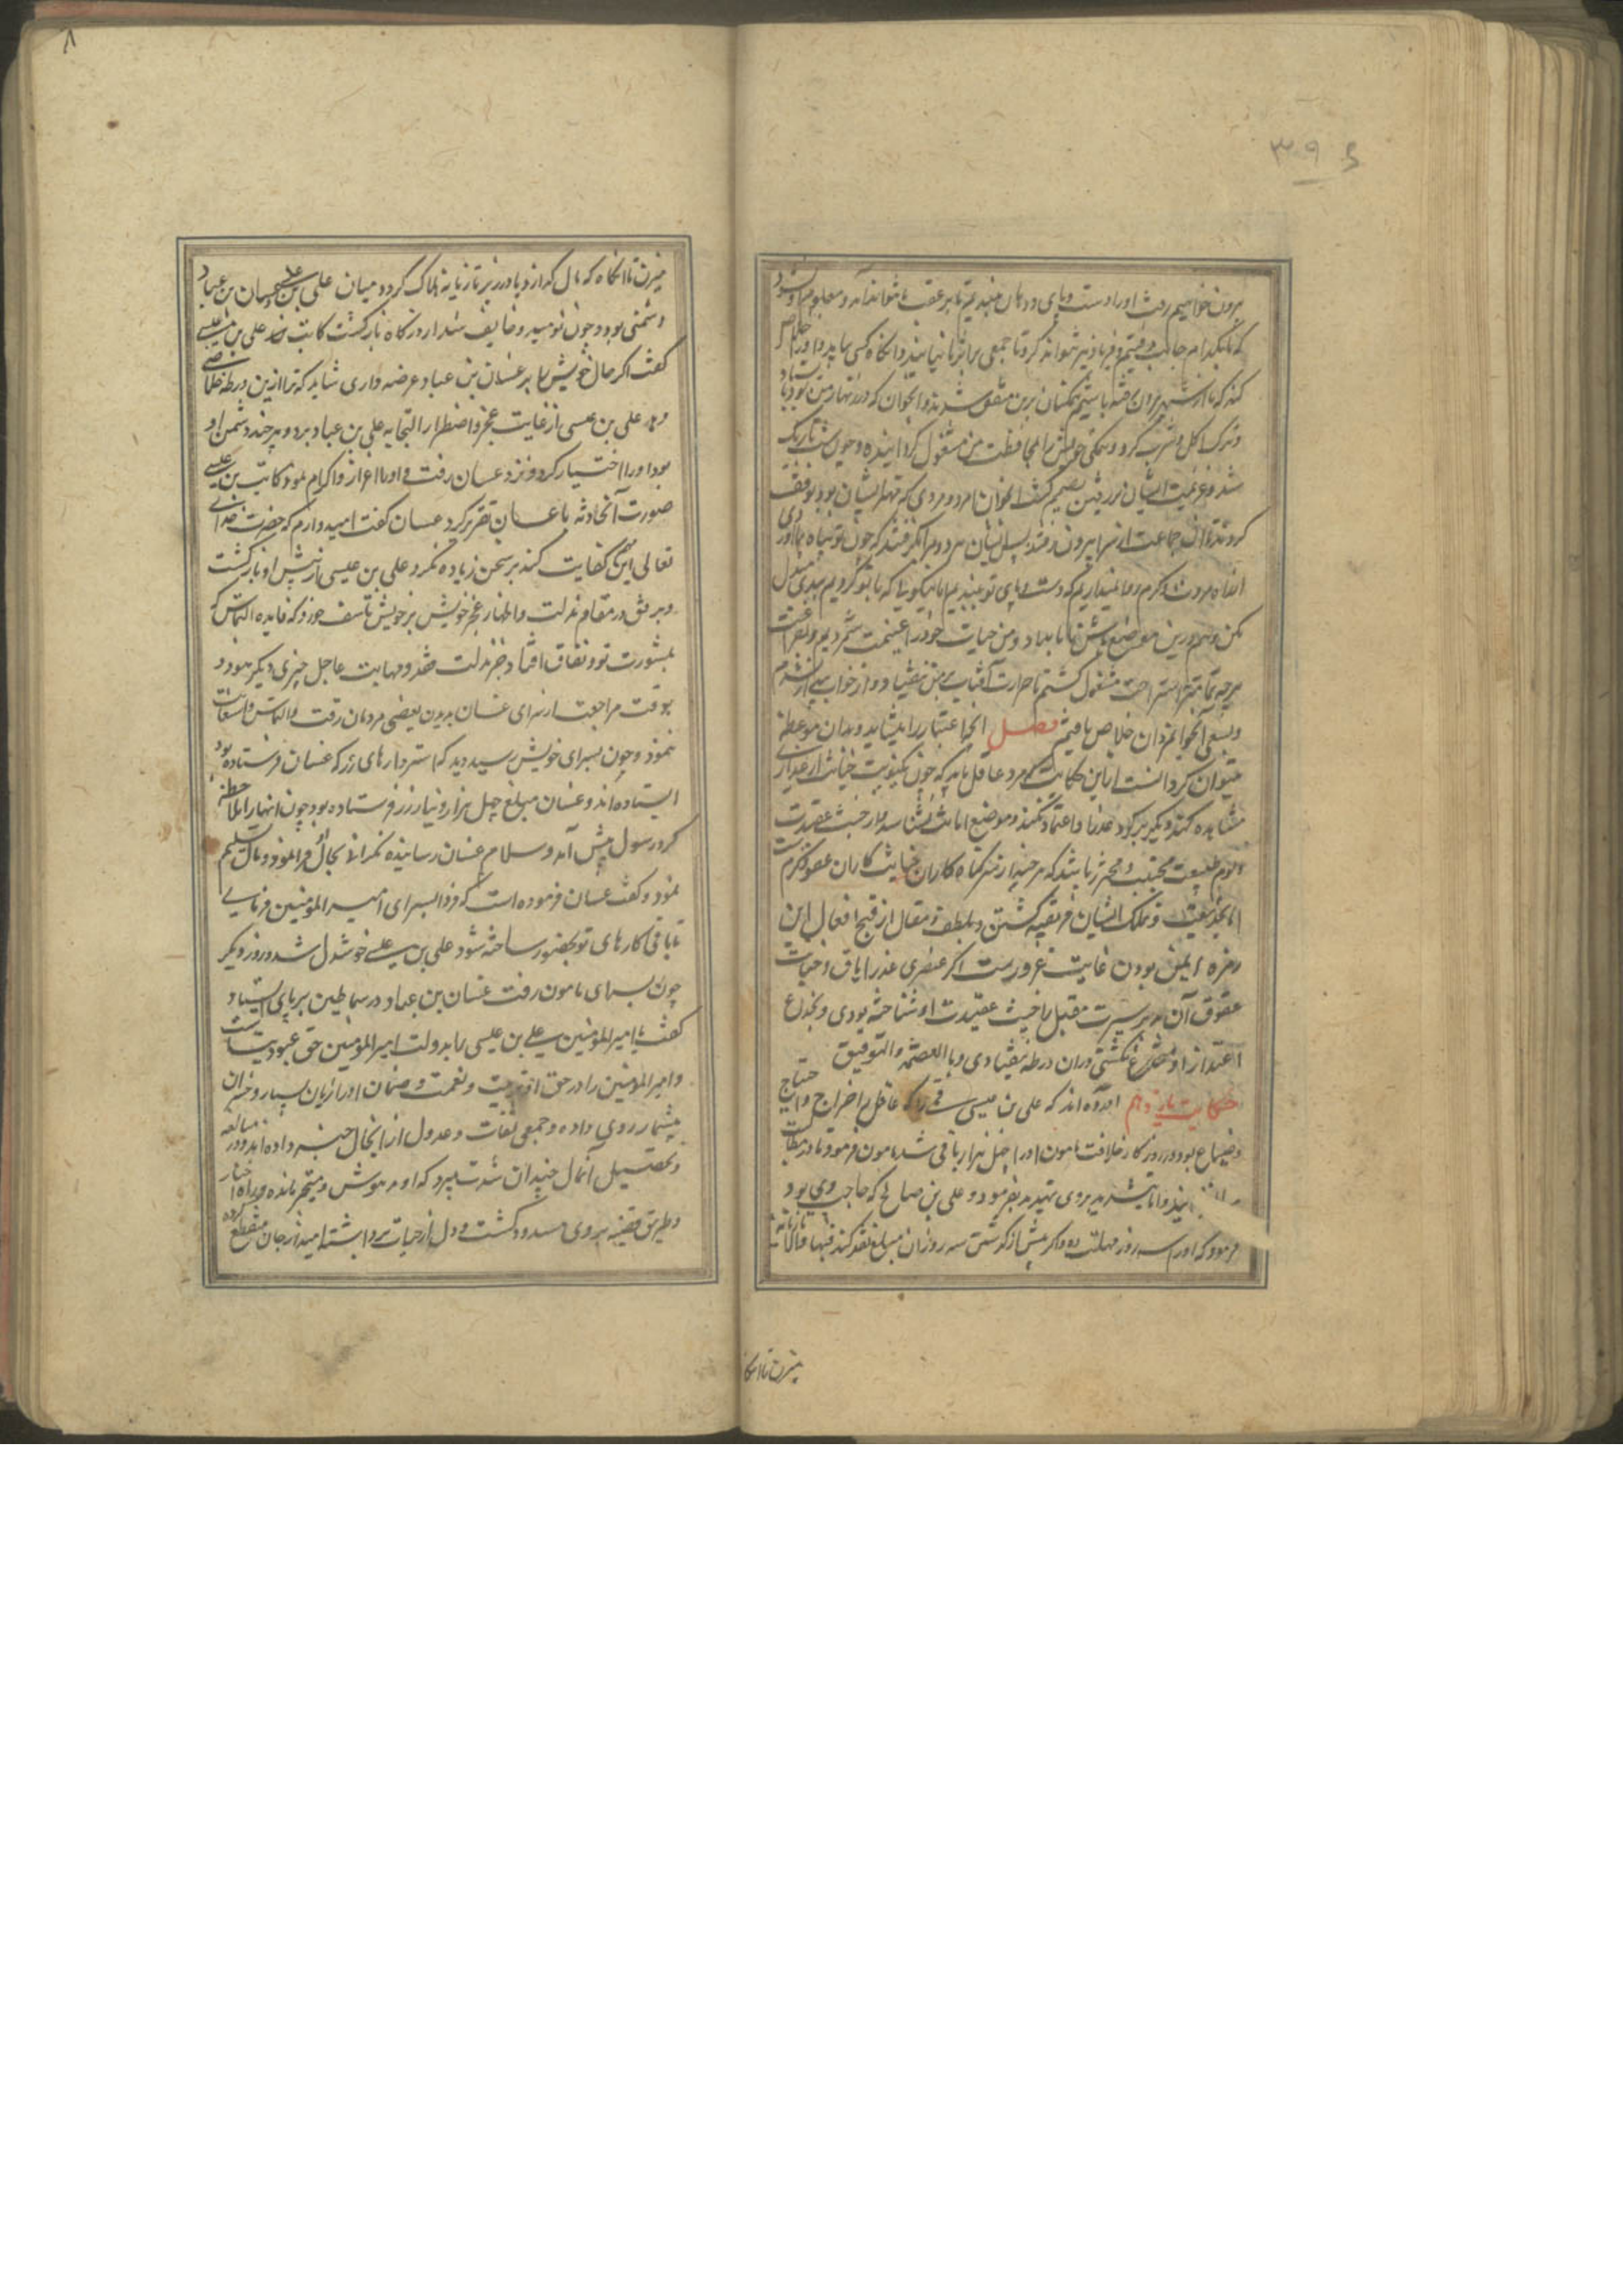 ۳۹
برون خواهیم رفت اورا دست و پای و دهان
که ما بکدام جانب رفتیم و فریاد نتواند کرد تا جمعی بر اثر ما نیایند و آنگاه کسی بیاید و اورا خلاص
کند که ما از شهر برون رفته باشیم همکنان برین متفق شدند و آنجوان که در
و ترک اکل و شرب کرد و همکی خویش را بمحافظت من مشغول کردانیده و چون شب تاریک
شد و عزیمت ایشان در رفتن تصمیم گشت آنجوان نامرد و مردی که
کردند تا آن جماعت از سرا بیرون رفتند پس ایشان هر دو مرا گفتند که چون تو پناه بما آوردی
از راه مروت و کرم روا نمیداریم که دست و پای تو بندیم اما نیکویی که با تو کردیم ببدی مبدل
مکن و هم درین موضع باش تا بامداد و من حیات خودرا غنیمت شمردیم و بفراغت
هرچه تمامتر باستراحت مشغول گشتم تا حرارت آفتاب بر من بیفتاد و از خواب بیدار شدم
و بسعی آنجوانمردان خلاص یافتم فصل آنچه اعتبار را بشاید و بدان موعظه
میتوان کرد آنست ازین حکایت که مرد عاقل باید که چون
مشاهده کند دیگر بر کرد و اعتماد نکند و موضع امانت نشناسد و از خبث عقیدت
و لوم طبیعت مجتنب و محترز باشد که هرچند از سر گناه کاران خیانت کاران عفو کرم است
اما بخدیعت و تملک ایشان فریفته گشتن و بلطف مقال از قبح افعال این
زمره ایمن بودن غایت غرورست اکر عنصری غدر اباق و خیانت
عقوق آن مدبر سیرت مقبل با خبث عقیدت او شناخته بودی و بخداع
اعتذار او منخدع نگشتی در آن ورطه نیفتادی و بالله العصمة والتوفیق
حکایت یازدهم آورده اند که علی بن عیسی قمی را که عاقل خراج و
ضیاع بود در روزکار خلافت مامون اورا چهل هزار باقی شد مامون فرمود تا در مطالبت
و تشدید بر وی تهدید بفرمود و علی بن صالح که حاجب وی بود
فرمود که اورا سه روز مهلت ده و اکر پیش از گذشتن سه روز آن مبلغ نقد کند فبها و الا تازیانه
میزن تا آنکاه
۸
میزن تا آنکاه که مال گذارد یا در زیر تازیانه هلاک گردد و میان علی بن عیسی و غسان بن عباد
دشمنی بود و چون نومید و خایف از درگاه بازگشت کاتب علی بن عیسی
گفت اکر حال خویش بر غسان بن عباد عرضه داری شاید که ترا ازین ورطه خلاصی
دهد علی بن عیسی از غایت عجز و اضطرار التجا به علی بن عباد برد و هرچند دشمن او
بود اورا اختیار کرد و نزد غسان رفت و اورا اعزاز و اکرام نمود کاتب بن عیسی
صورت آنحادثه با غسان تقریر کرد غسان گفت امیدوارم که حضرت خدای
تعالی این مهم کفایت کند بر سخن زیاده نکرد علی بن عیسی از پیش او بازگشت
و برفق در مقام مذلت و اظهار عجز خویش بر خویش تاسف خورد که فایده
بمشورت تو و نفاق افتاد جز مذلت نقد و مهابت عاجل چیزی دیگر نبود و
بوقت مراجعت از سرای غسان بدیدن بعضی مردمان رفت و التماس
نمود و چون بسرای خویش رسید دید که استردارهای زر که غسان فرستاده بود
ایستاده اند و غسان مبلغ چهل هزار دینار زر فرستاده بود چون آنهارا ملاحظه
کرد رسول پیش آمد و سلام غسان رسانیده و مال تسلیم
نمود و گفت غسان فرموده است که فردا بسرای امیر المؤمنین فرمایی
تا باقی کارهای تو بحضور ساخته شود علی بن عیسی خوشدل شد و روز دیگر
چون بسرای مامون رفت غسان بن عباد در سماطین بر پای ایستاد و
گفت یا امیر المؤمنین علی بن عیسی را بدولت امیر المؤمنین حق عبودیت است
و امیر المؤمنین را در حق او تربیت و نعمت و ضمان اورا زیان بسیار و خسران
بیشمار روی داده و جمعی ثقات و عدول از آنحال خبر داده اند و در مبالغه
و تحصیل آنمال چندان شدت برد که او مدهوش و متحیر مانده و راه اختیار
و طریق قضیه بر وی مسدود گشت و دل از حیات برداشته امید از جان منقطع کرده